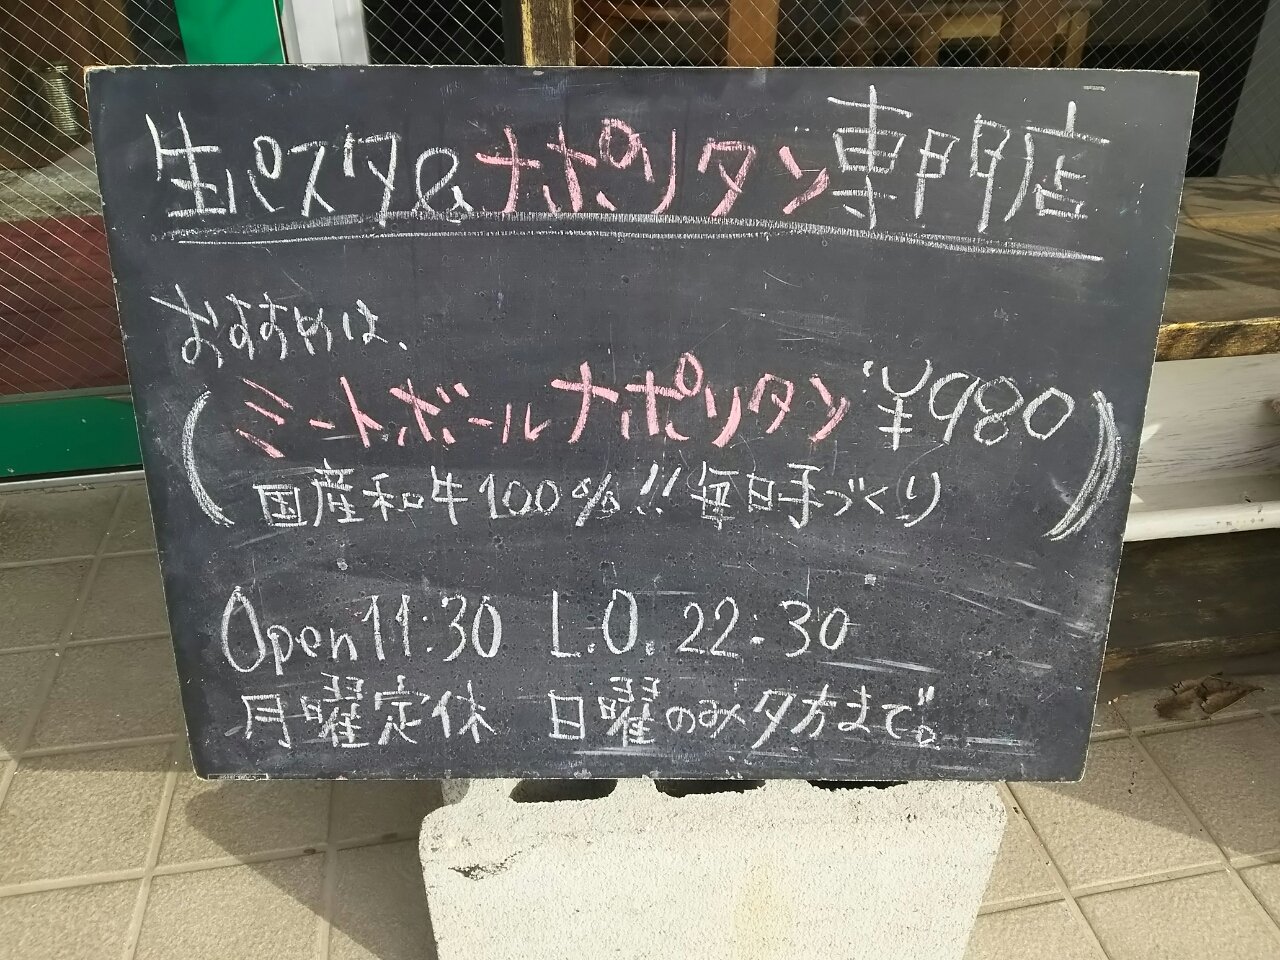 生パスタ&ナポリタン専門店
おすすめは、
ミートボールナポリタン ¥980
国産和牛100%!! 毎日手づくり
Open 11:30 L.O. 22:30
月曜定休 日曜のみ夕方まで。